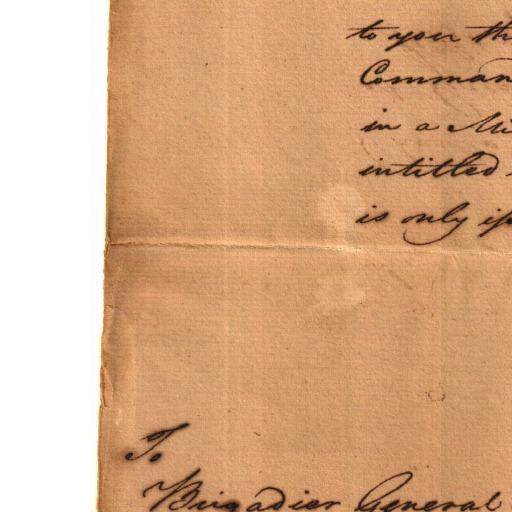 to your
Comman
in a Mi
intitled
is only
To
Brigadier General